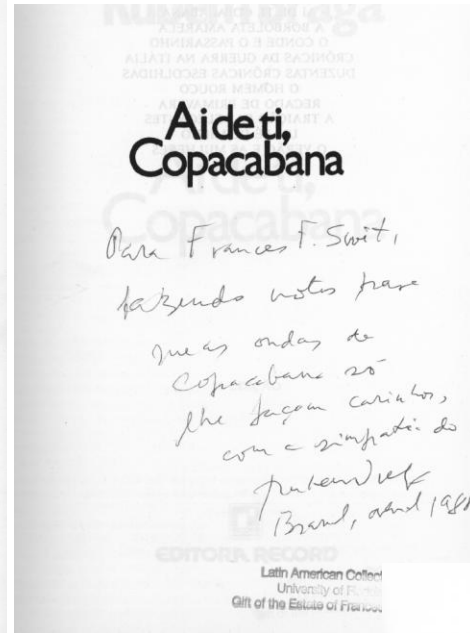 Ai de ti,
Copacabana
Para Frances F. Swit,
fazendo votos para
que as ondas de
Copacabana só
lhe façam carinhos,
com a simpatia do
Brasil, abril
EDITORA RECORD
Latin American Collect
University of
Gift of the Estate of Frances